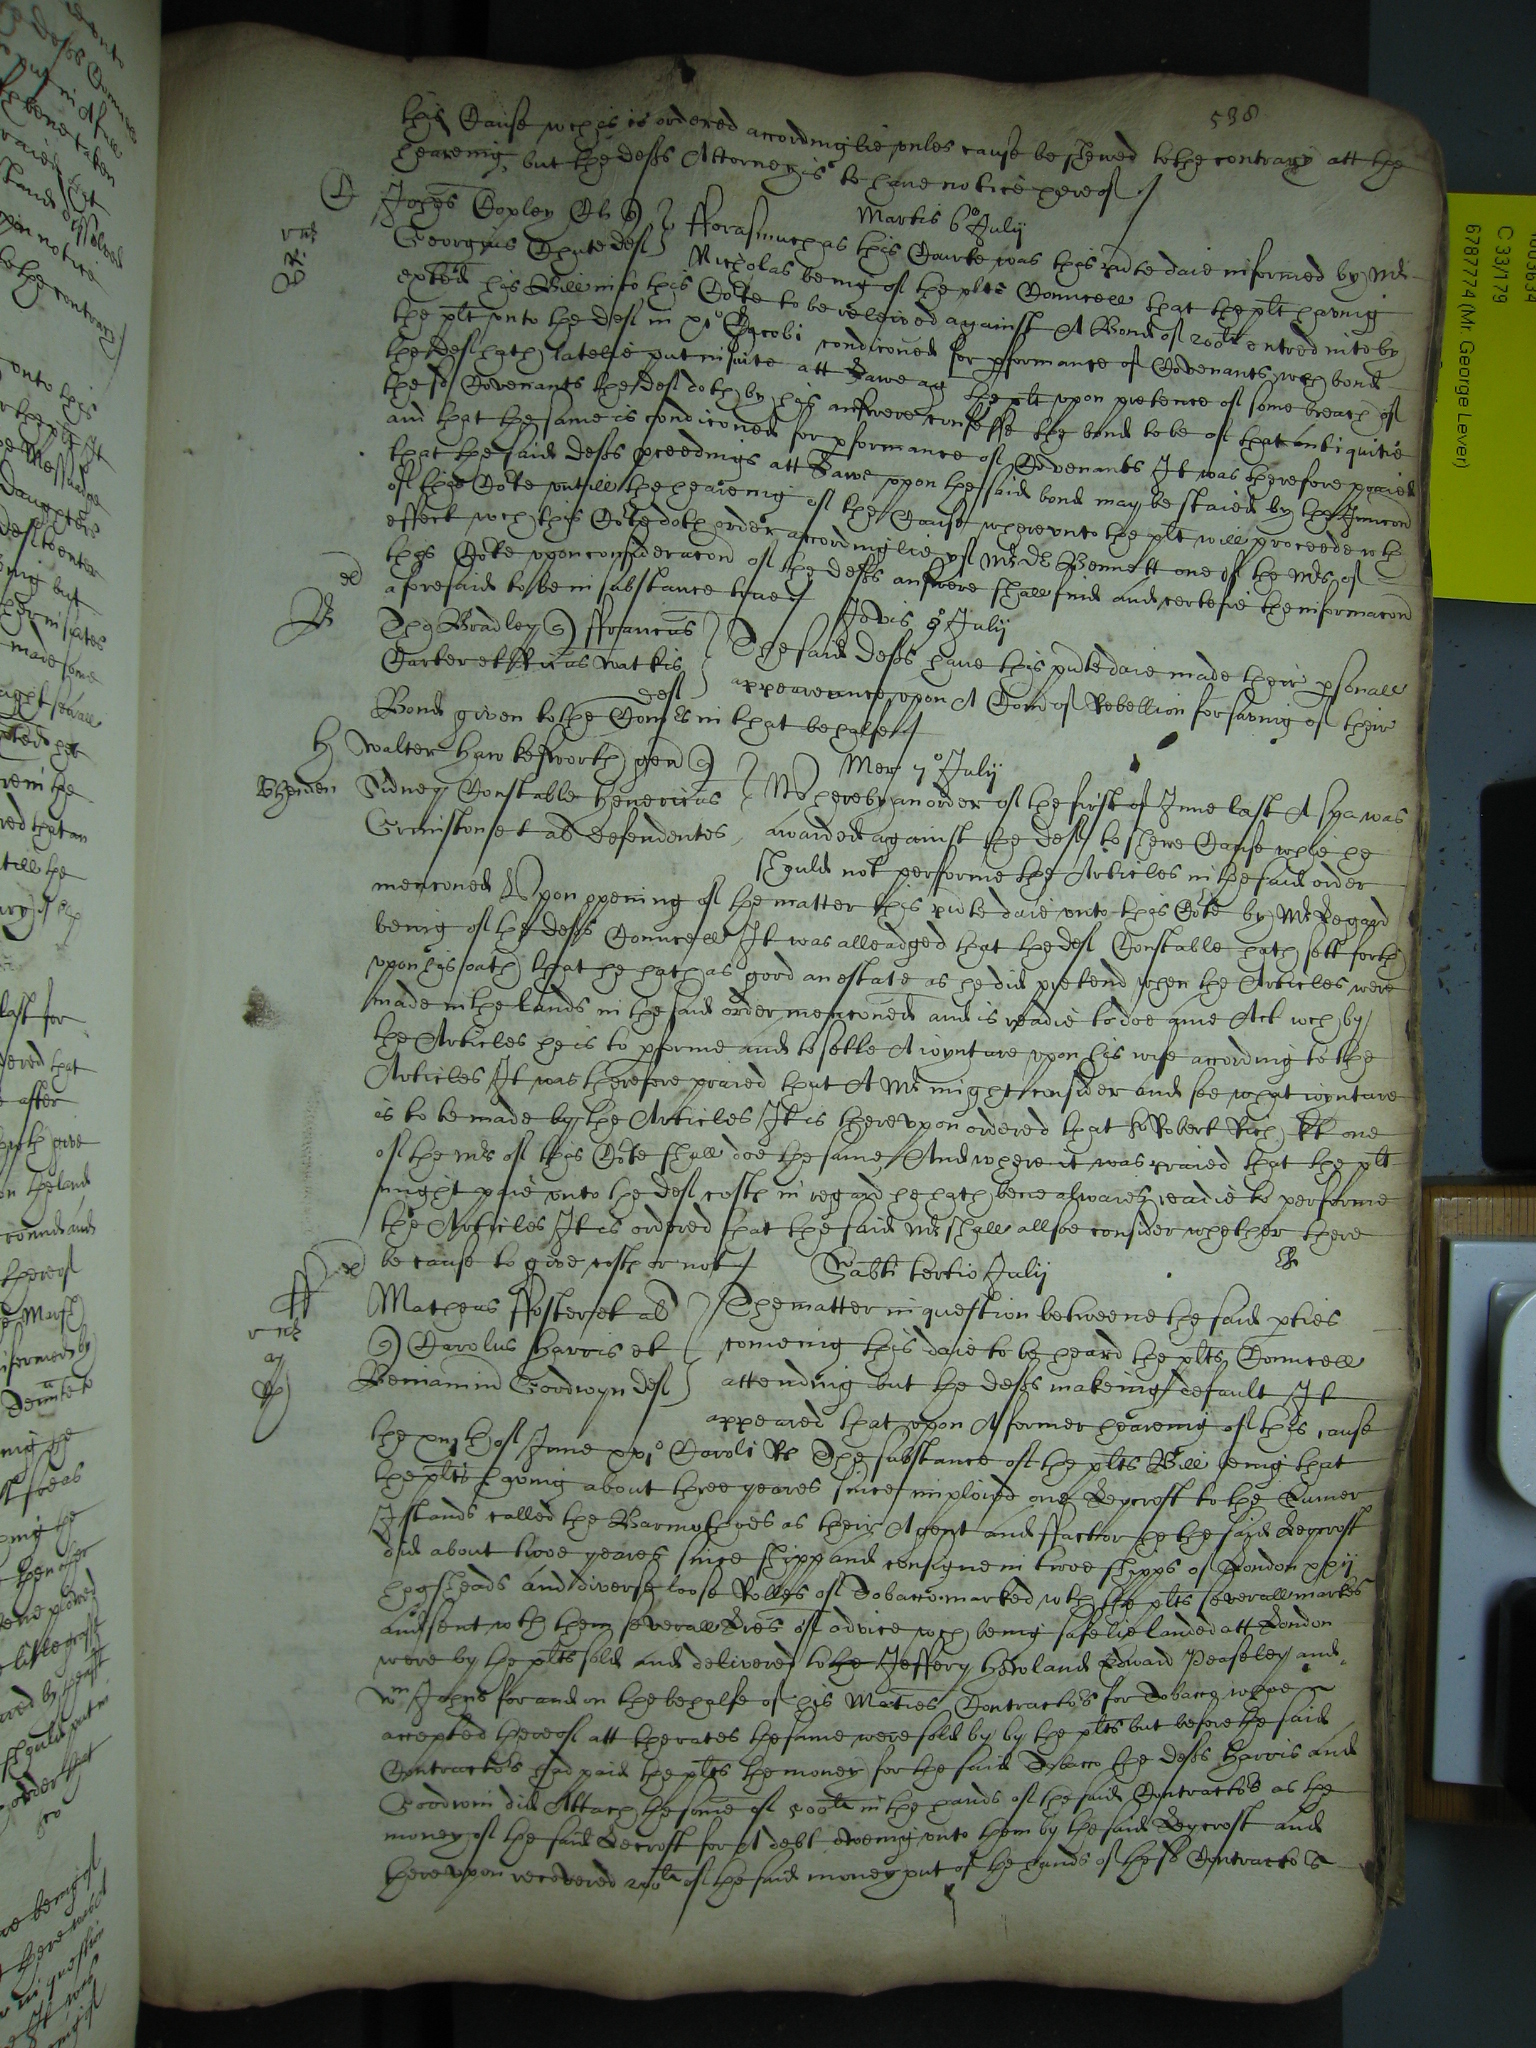 538
this Cause wch is is ordered accordinglie unles cause be shewed to the contrary att the
hearing but the defts Attorney is to have notice hereof
Martis 6o July
Johes Copley
Georgius Chute def
fforasmuch as this Courte was this pnte daie informed by Mr
Nicholas being of the plts Councell that the plt having
his Bill into this Cote to be releived against A Bond of 200li entred into by
the plt unto the def in xio Jacobi condiconed for pformance of Covenants wch bond
the def hath latelie put in suite att Lawe ag the plt upon pretence of some breach of
the sd Covenants the def doth by his answere confesse the bond to be of that antiquitie
and that the same is condiconed for pformance of Covenants It was therefore praied
that the said defts pceedings att Lawe upon the said bond may be staied by the Iniuncon
of this Cote untill the hearing of the Cause whereunto the plt will proceede wth
effect wch this Cote doth order accordinglie yf Mr Dr Bennett one of the Mrs of
this Cote upon consideracon of the defts answere shall find and certefie the informacon
aforesaid to be in substance true
Jovis 8o July
Tho Bradley ffrancus
Carter et Ricus Watkis
def
The said defts have this pnte daie made their psonall
appearance upon A Com of Rebellion for saving of their
Bond given to the Comrs in that behalfe
Mer 7o July
H Walter Hawkesworth gen
Sidney Constable Henericus
Grimston et al defendentes
Whereby an order of the first of June last A spa was
awarded against the def to shewe Cause whie he
should not performe the Articles in the said order
menconed Upon opening of the matter this pnte daie unto this Cote by Mr Legard
being of the defts Councell It was alleadged that the def Constable hath sett forth
upon his oath that he hath as good an estate as he did pretend when the Articles were
made in the lands in the said order menconed and is readie to doe anie Act wch by
the Articles he is to pforme and to settle A ioynture upon his wife according to the
Articles It was therefore praied that A Mr might consider and see what ioynture
is to be made by the Articles It is thereupon ordered that Sr Robert Rich kt one
of the Mrs of this Cote shall doe the same And where it was praied that the plt
might paie unto the def costs in regard he hath bene alwaies readie to performe
the Articles It is ordered that the said Mr shall allsoe consider whether there
be cause to give costs or not
Sabti tertio July
Matheus ffoster et al
Carolus Harris et
Beniamin Goodwyn def
The matter in question betweene the said pties
comeing this daie to be heard the plts Councell
attending but the defts makeing default It
appeared that upon A former hearing of this cause
the of June Caroli Rs The substance of the plts Bill being that
the plts having about three yeares since imploied one Leycroft to the Sumer
Islands called the Barmuthoes as their Agent and ffactor he the said Leycroft
did about twoe yeares since shipp and consigne in twoe shipps of London xxij
hogsheads and diverse loose Rolles of Tobacco marked wth the plts severall markes
and sent wth them severall Lres of advice wch being safelie landed att London
were by the plts sold and delivered to the Jeffery Howland Edward Peaseley and
Wm Johns for and on the behalfe of his Maties Contractors for Tobacco whoe
accepted thereof att the rates the same were sold by by the plts but before the said
Contractors had paid the plts the money for the said Tobacco the defts Harris and
Goodwin did Attach the some of 500li in the hands of the said Contractors as the
money of the said Lecroft for A debt oweing unto them by the said Leycroft and
thereupon recovered of the said money out of the hands of the sd Contractors
C 33/179
6787774 (Mr. George Lever)